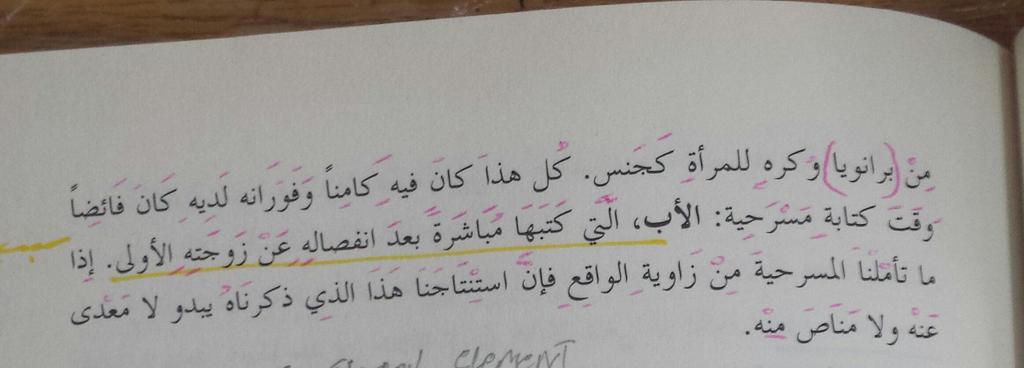 مِنْ (برانويا) وَكره للمرأةِ كَجَنس. كُل هذا كانَ فيه كَامِناً وَفَورَانه لَديهِ كَانَ فَائضاً
وَقتَ كتابةِ مَسْرَحية: الأب، الَّتي كَتَبَهَا مُبَاشَرةً بعدَ انفصالهِ عَنْ زَوجَتهِ الأولى. إذا
ما تأمَلْنَا المسرحيةَ مِنْ زَاويةِ الواقعِ فإنَّ استِنْتَاجَنَا هَذَا الذِي ذكرنَاهُ يبدو لا مَعْدى
عَنْه ولا مَناصَ مِنْه.
element